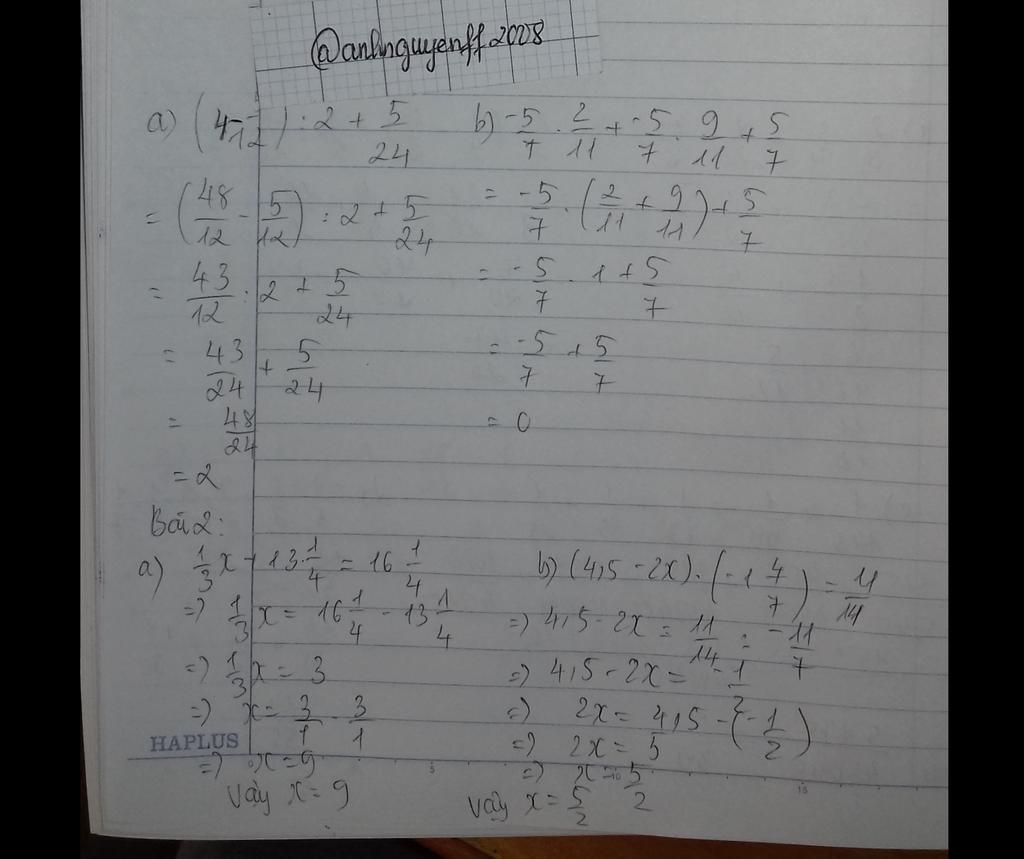 @anhnguyenff2008
a) (4 - 5/12) : 2 + 5/24
= (48/12 - 5/12) : 2 + 5/24
= 43/12 : 2 + 5/24
= 43/24 + 5/24
= 48/24
= 2
b) -5/7 . 2/11 + -5/7 . 9/11 + 5/7
= -5/7 . (2/11 + 9/11) + 5/7
= -5/7 . 1 + 5/7
= -5/7 + 5/7
= 0
Bài 2:
a) 1/3 x + 13 1/4 = 16 1/4
=) 1/3 x = 16 1/4 - 13 1/4
=) 1/3 x = 3
=) x = 3/1 . 3/1
=) x = 9
Vậy x = 9
b) (4,5 - 2x) . (-1 4/7) = 11/14
=) 4,5 - 2x = 11/14 : -11/7
=) 4,5 - 2x = -1/2
=) 2x = 4,5 - (-1/2)
=) 2x = 5
=) x = 5/2
Vậy x = 5/2
HAPLUS
5
10
15